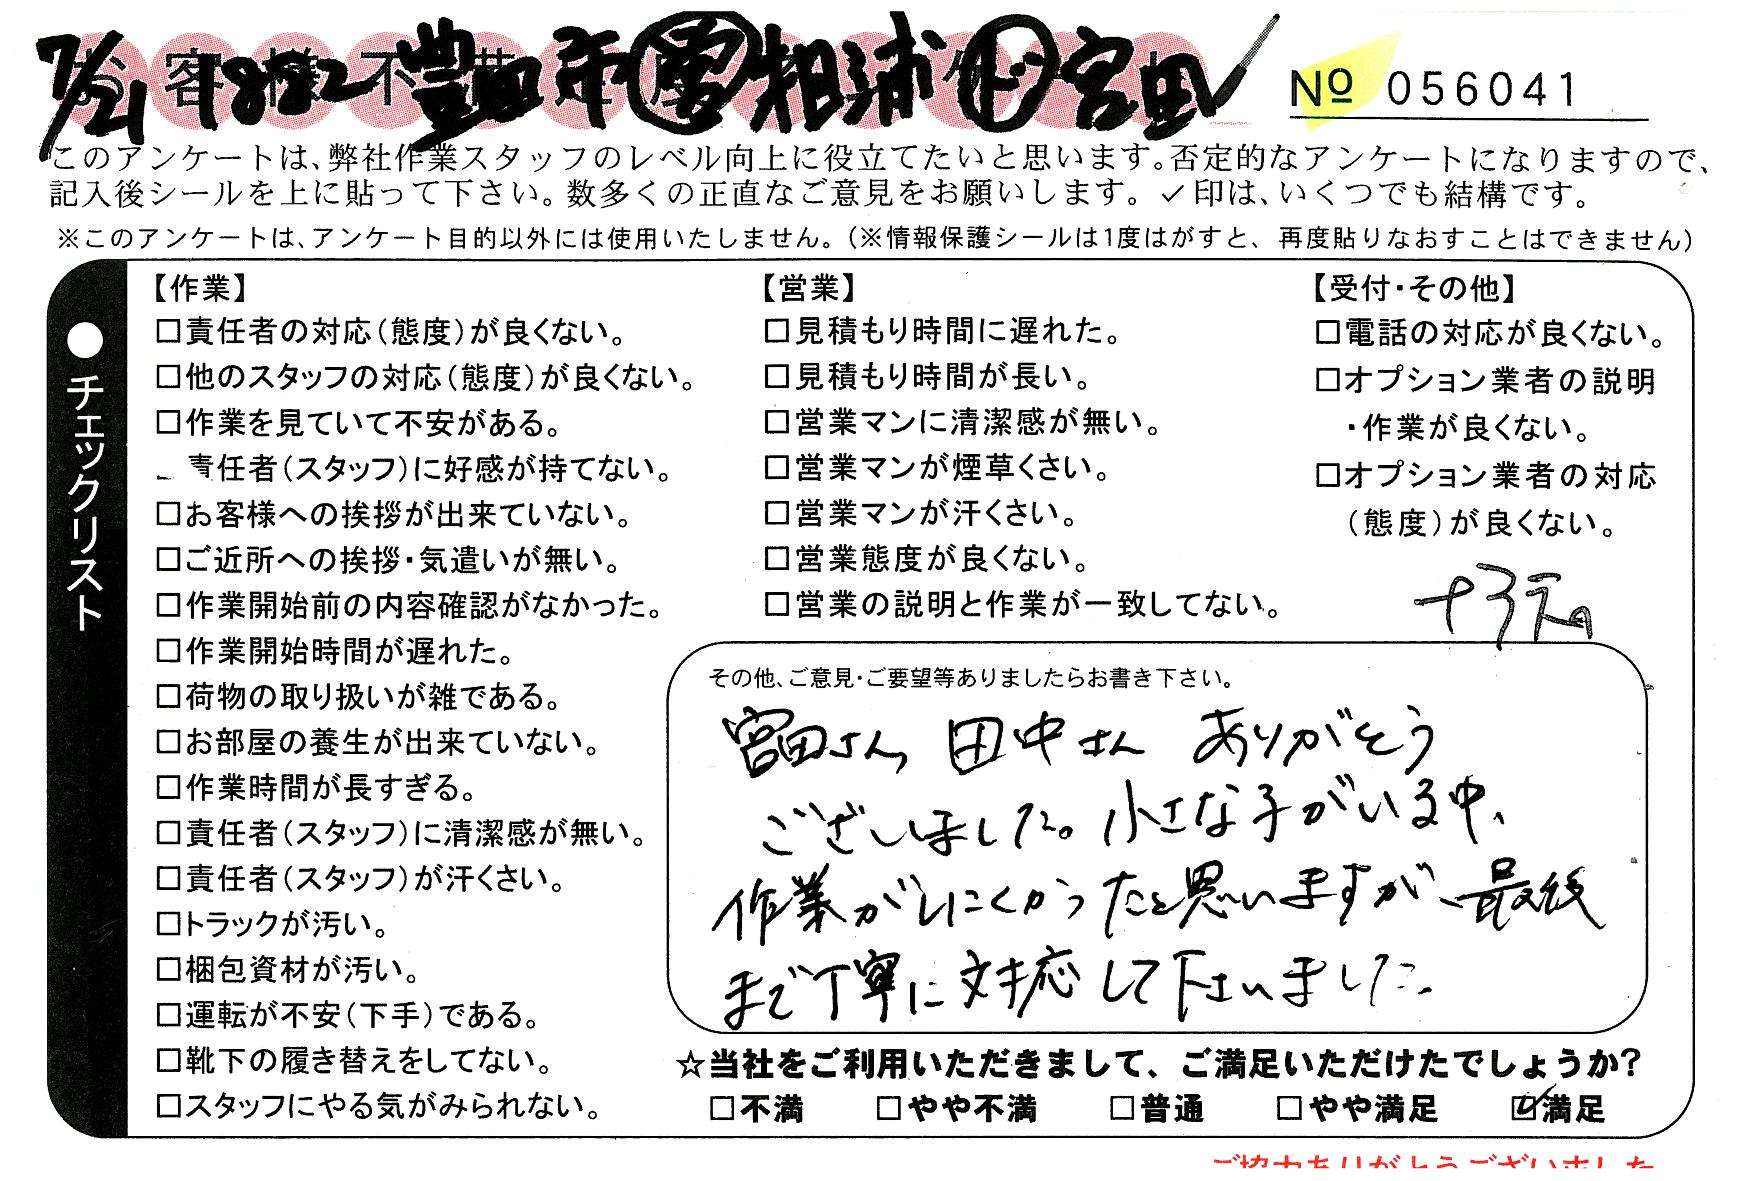 7/21 1852 豊田市 営 相浦 ド 宮田
お客様不満足度アンケート
№ 056041
このアンケートは、弊社作業スタッフのレベル向上に役立てたいと思います。否定的なアンケートになりますので、
記入後シールを上に貼って下さい。数多くの正直なご意見をお願いします。✓印は、いくつでも結構です。
※このアンケートは、アンケート目的以外には使用いたしません。（※情報保護シールは1度はがすと、再度貼りなおすことはできません）
●チェックリスト
【作業】
□責任者の対応（態度）が良くない。
□他のスタッフの対応（態度）が良くない。
□作業を見ていて不安がある。
責任者（スタッフ）に好感が持てない。
□お客様への挨拶が出来ていない。
□ご近所への挨拶・気遣いが無い。
□作業開始前の内容確認がなかった。
□作業開始時間が遅れた。
□荷物の取り扱いが雑である。
□お部屋の養生が出来ていない。
□作業時間が長すぎる。
□責任者（スタッフ）に清潔感が無い。
□責任者（スタッフ）が汗くさい。
□トラックが汚い。
□梱包資材が汚い。
□運転が不安（下手）である。
□靴下の履き替えをしてない。
□スタッフにやる気がみられない。
【営業】
□見積もり時間に遅れた。
□見積もり時間が長い。
□営業マンに清潔感が無い。
□営業マンが煙草くさい。
□営業マンが汗くさい。
□営業態度が良くない。
□営業の説明と作業が一致してない。
【受付・その他】
□電話の対応が良くない。
□オプション業者の説明
・作業が良くない。
□オプション業者の対応
（態度）が良くない。
その他、ご意見・ご要望等ありましたらお書き下さい。
宮田さん 田中さん ありがとう
ございました。小さな子がいる中、
作業がしにくかったと思いますが、最後
まで丁寧に対応して下さいました。
☆当社をご利用いただきまして、ご満足いただけたでしょうか？
□不満 □やや不満 □普通 □やや満足 ☑満足
ご協力ありがとうございました